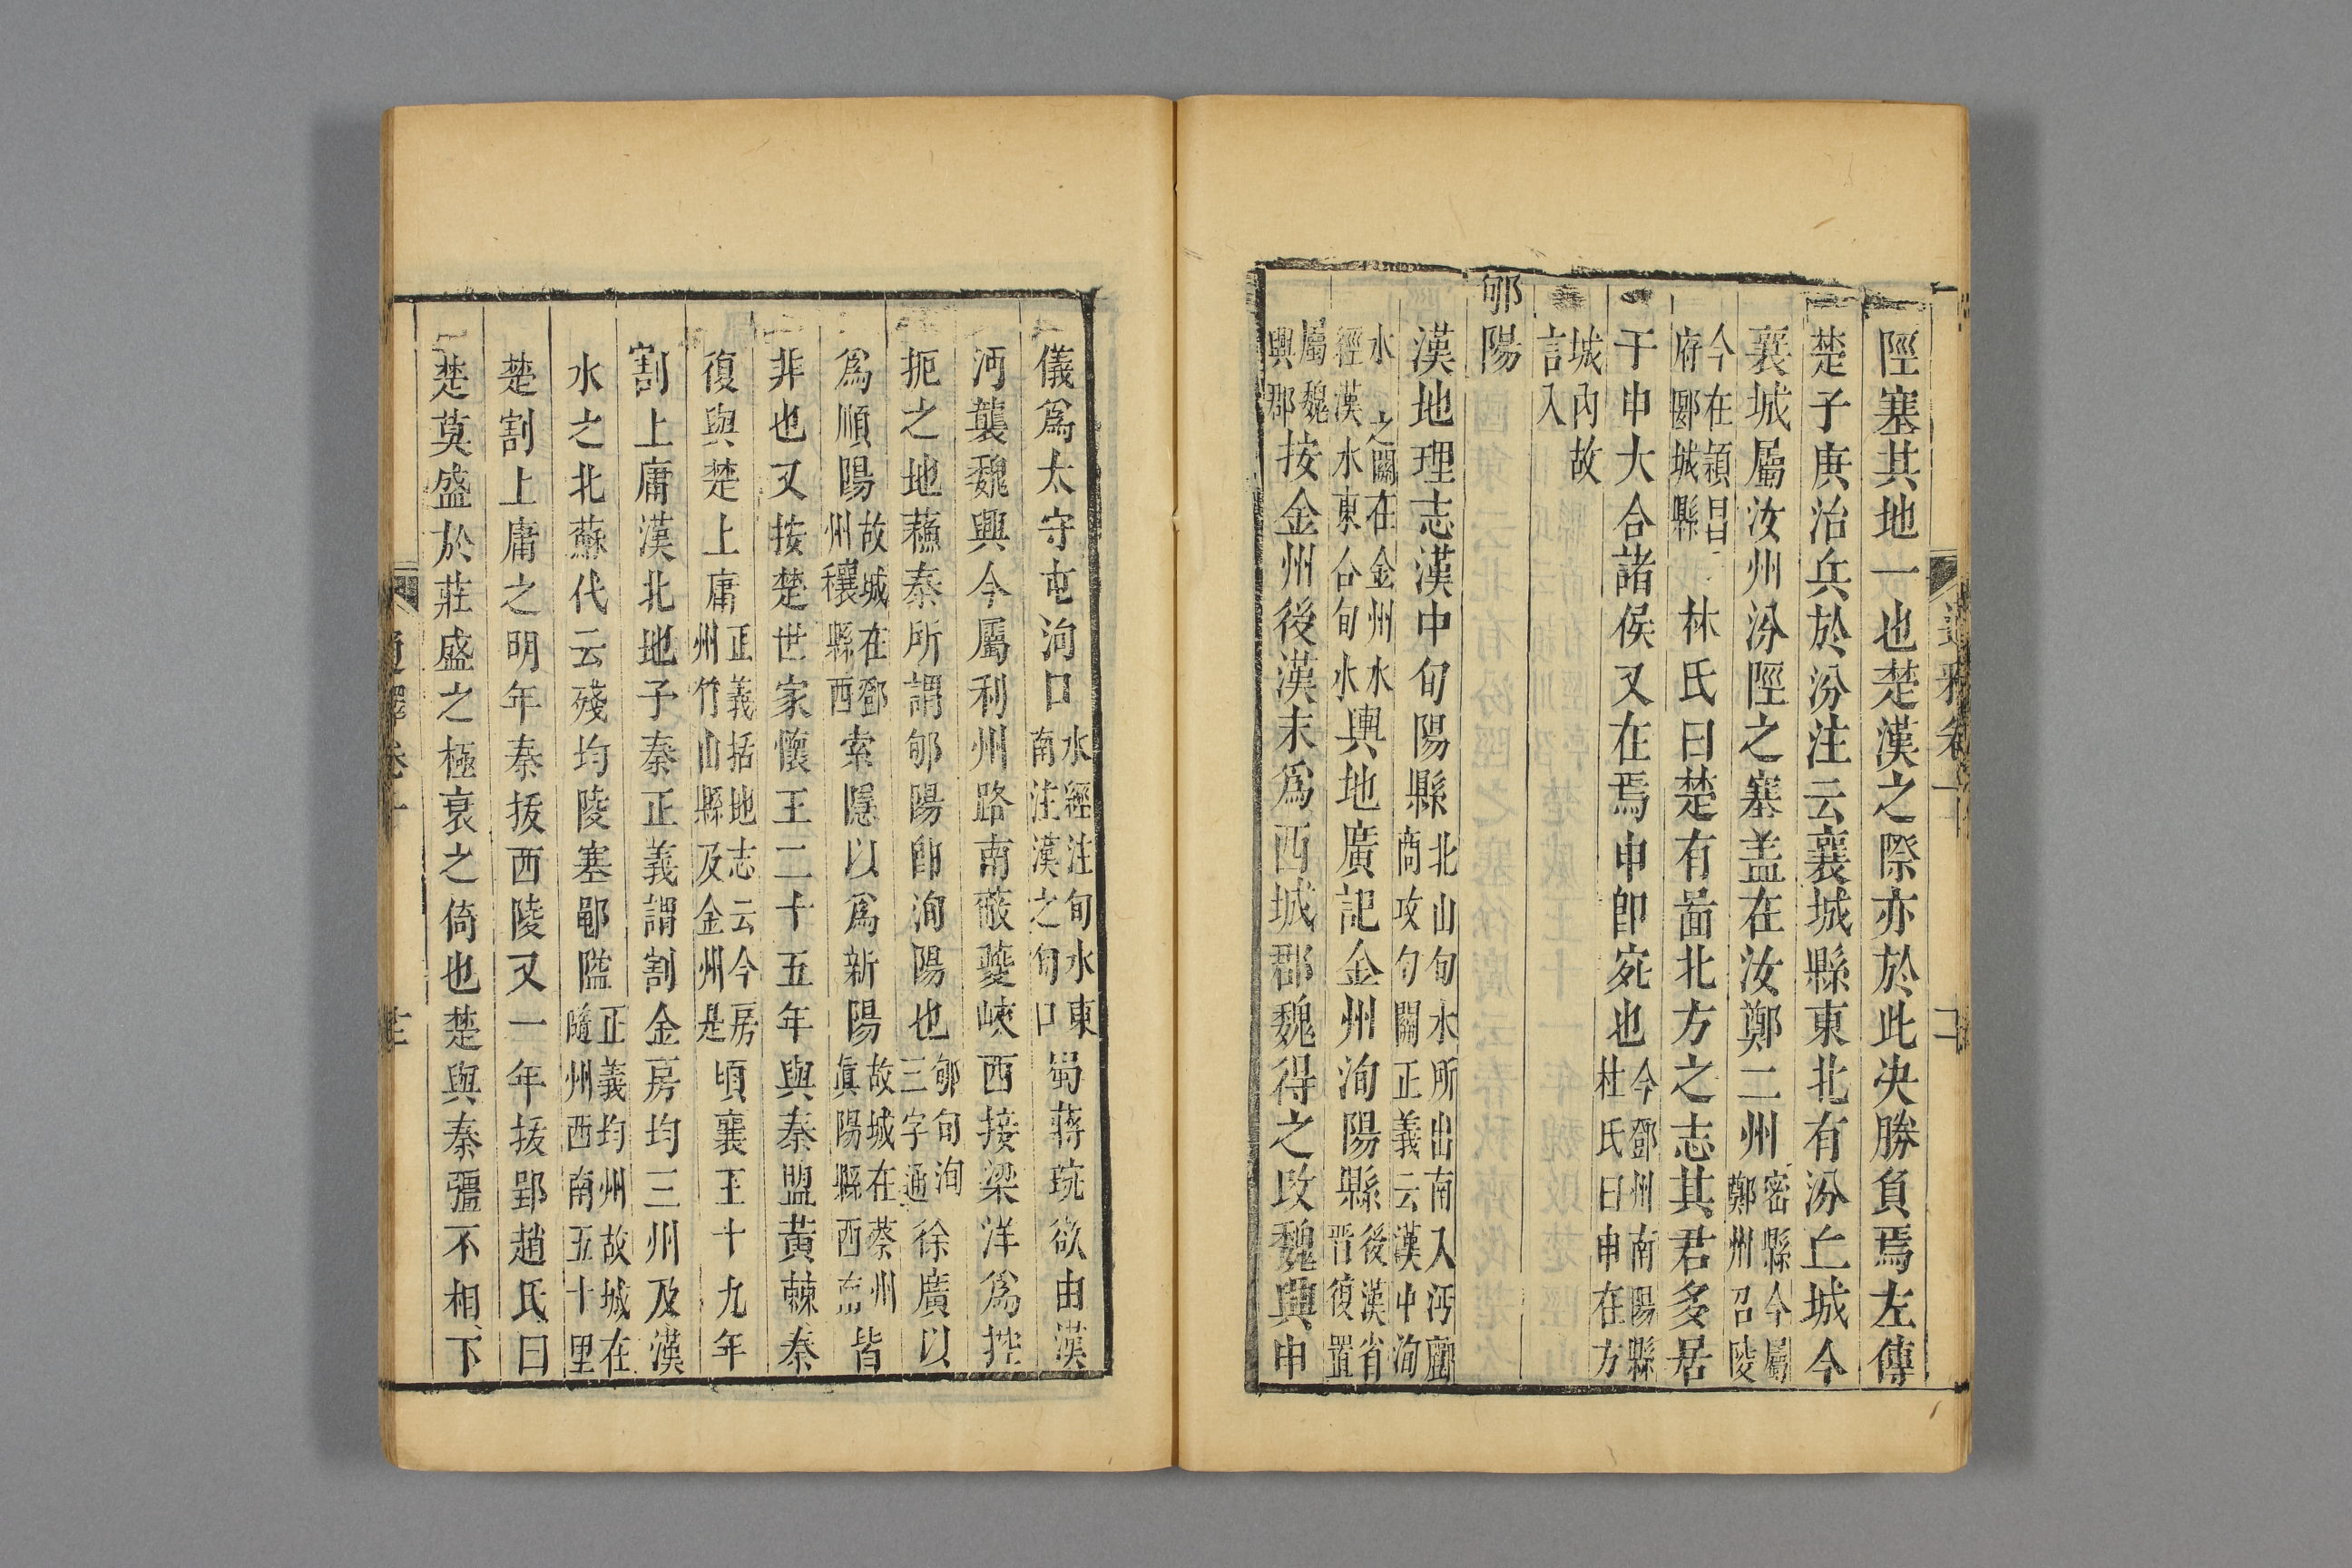 陘塞其地一也楚漢之際亦於此決勝負焉左傳
楚子庚治兵於汾注云襄城縣東北有汾丘城今
襄城屬汝州汾陘之塞盖在汝鄭二州密縣今屬鄭州召陵
今在穎昌府郾城縣林氏曰楚有啚北方之志其君多居
于申大合諸侯又在焉申卽宛也今鄧州南陽縣杜氏曰申在方
城內故言入
郇陽
漢地理志漢中旬陽縣北山旬水所出南入沔酈商攻旬關正義云漢中洵
水之關在金州水經漢水東合旬水輿地廣記金州洵陽縣後漢省晋復置
屬魏興郡按金州後漢末爲西城郡魏得之改魏興申
儀爲太守屯洵口水經注旬水東南注漢之旬口蜀蔣琬欲由漢
沔襲魏興今屬利州路南蔽夔峽西接梁洋爲控
扼之地蘓秦所謂郇陽卽洵陽也郇旬洵三字通徐廣以
爲順陽故城在鄧州穰縣西索隱以爲新陽故城在蔡州眞陽縣西南皆
非也又按楚世家懷王二十五年與秦盟黃棘秦
復與楚上庸正義括地志云今房州竹山縣及金州是頃襄王十九年
割上庸漢北地予秦正義謂割金房均三州及漢
水之北蘇代云殘均陵塞鄳隘正義均州故城在隨州西南五十里
楚割上庸之明年秦拔西陵又一年拔郢趙氏曰
楚莫盛於莊盛之極衰之倚也楚與秦彊不相下